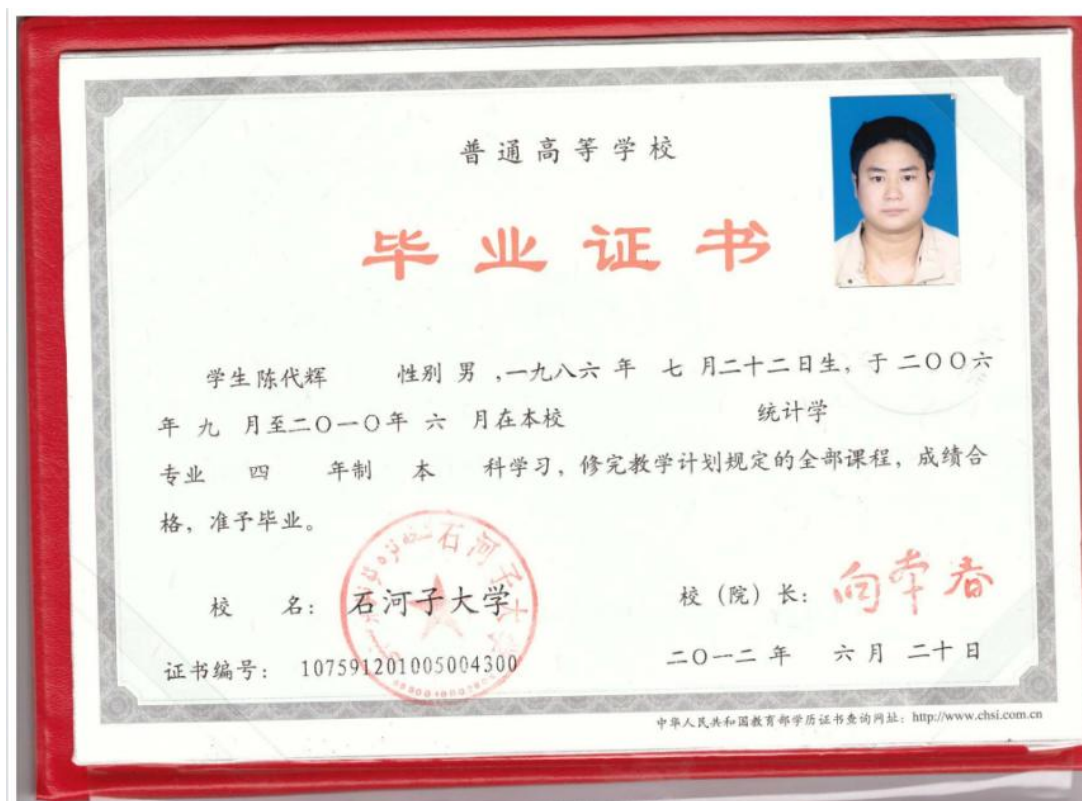 普通高等学校
毕业证书
学生 陈代辉 性别 男 ,一九八六 年 七 月二十二日生, 于 二〇〇六
年 九 月至二〇一〇年 六 月在本校 统计学
专业 四 年制 本 科学习, 修完教学计划规定的全部课程, 成绩合
格, 准予毕业。
石河子大学
校 名: 石河子大学 校（院）长: 向本春
证书编号: 107591201005004300 二〇一二 年 六 月 二十 日
中华人民共和国教育部学历证书查询网址: http://www.chsi.com.cn